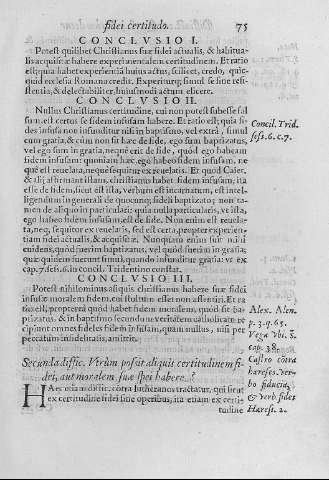 fidei certitudo. 75
CONCLVSIO I.
Potest quilibet Christianus suæ fidei actualis, & habitua-
lis acquisitæ habere experimentalem certitudinem. Et ratio
est; quia habet experientiā huius actus, scilicet, credo, quic-
quid ecclesia Romana credit. Experitur enim, se sine resi-
stentia, & delectabiliter, huiusmodi actum elicere.
CONCLVSIO II.
Nullus Christianus certitudine, cui non potest subesse fal
sum, est certus se fidem infusam habere. Et ratio est; quia fi-
des infusa non infunditur nisi in baptismo, vel extra, simul
cum gratia, & cum non sit hæc de fide, ego sum baptizatus,
vel ego sum in gratia, neque erit de fide, quod ego habeam
fidem infusam: quoniam hæc, ego habeo fidem infusam, ne
que est reuelata, neque sequitur ex reuelatis. Et quod Caiet.
& alij affirmant illam, christianus habet fidem infusam, ita
esse de fidem, sicut est ista, verbum est incarnatum, est intel-
ligendum in generali de quocunq; fideli baptizato; non ta-
men de aliquo in particulari; quia nulla particularis, vt ista,
ego habeo fidem infusam, est de fide. Neq; enim est reuela-
ta, neq; sequitur ex reuelatis, sed est certa, propter experien-
tiam fidei actualis, & acquisitæ. Nunquam enim fuit mihi
euidens, quod fuerim baptizatus, vel quod fuerim in gratia,
quæ eādem fuerunt simul, quando infunditur gratia: vt ex
cap. 7. sess. 6. in concil. Tridentino constat.
Concil. Trid.
sess. 6. c. 7.
CONCLVSIO III.
Potest nihilominus quisquis christianus habere suæ fidei
infusæ moralem fidem, cui stultum esset non assentiri. Et ra
tio est, propterea quod habet fidem moralem, quod sit bap
tizatus. & in baptismo secundum veritatem catholicam re
cipiunt omnes fideles fidem infusam, quam nullus, nisi per
peccatum infidelitatis, amittit.
Alex. Alen.
p. 3. q. 65.
Vega vbi. S.
cap. 38.
Secunda diffic. Vtrùm possit aliquis certitudinem fi-
dei, aut moralem, suæ spei habere.?
Castro cōtra
hæreses. ver-
bo fiducia,
& verb. fides
Hæresi. 2.
HAec etiā diffic. cōtra lutheranos tractatur, qui sicut
ex certitudine fidei sine operibus, ita etiam ex certi-
tudine